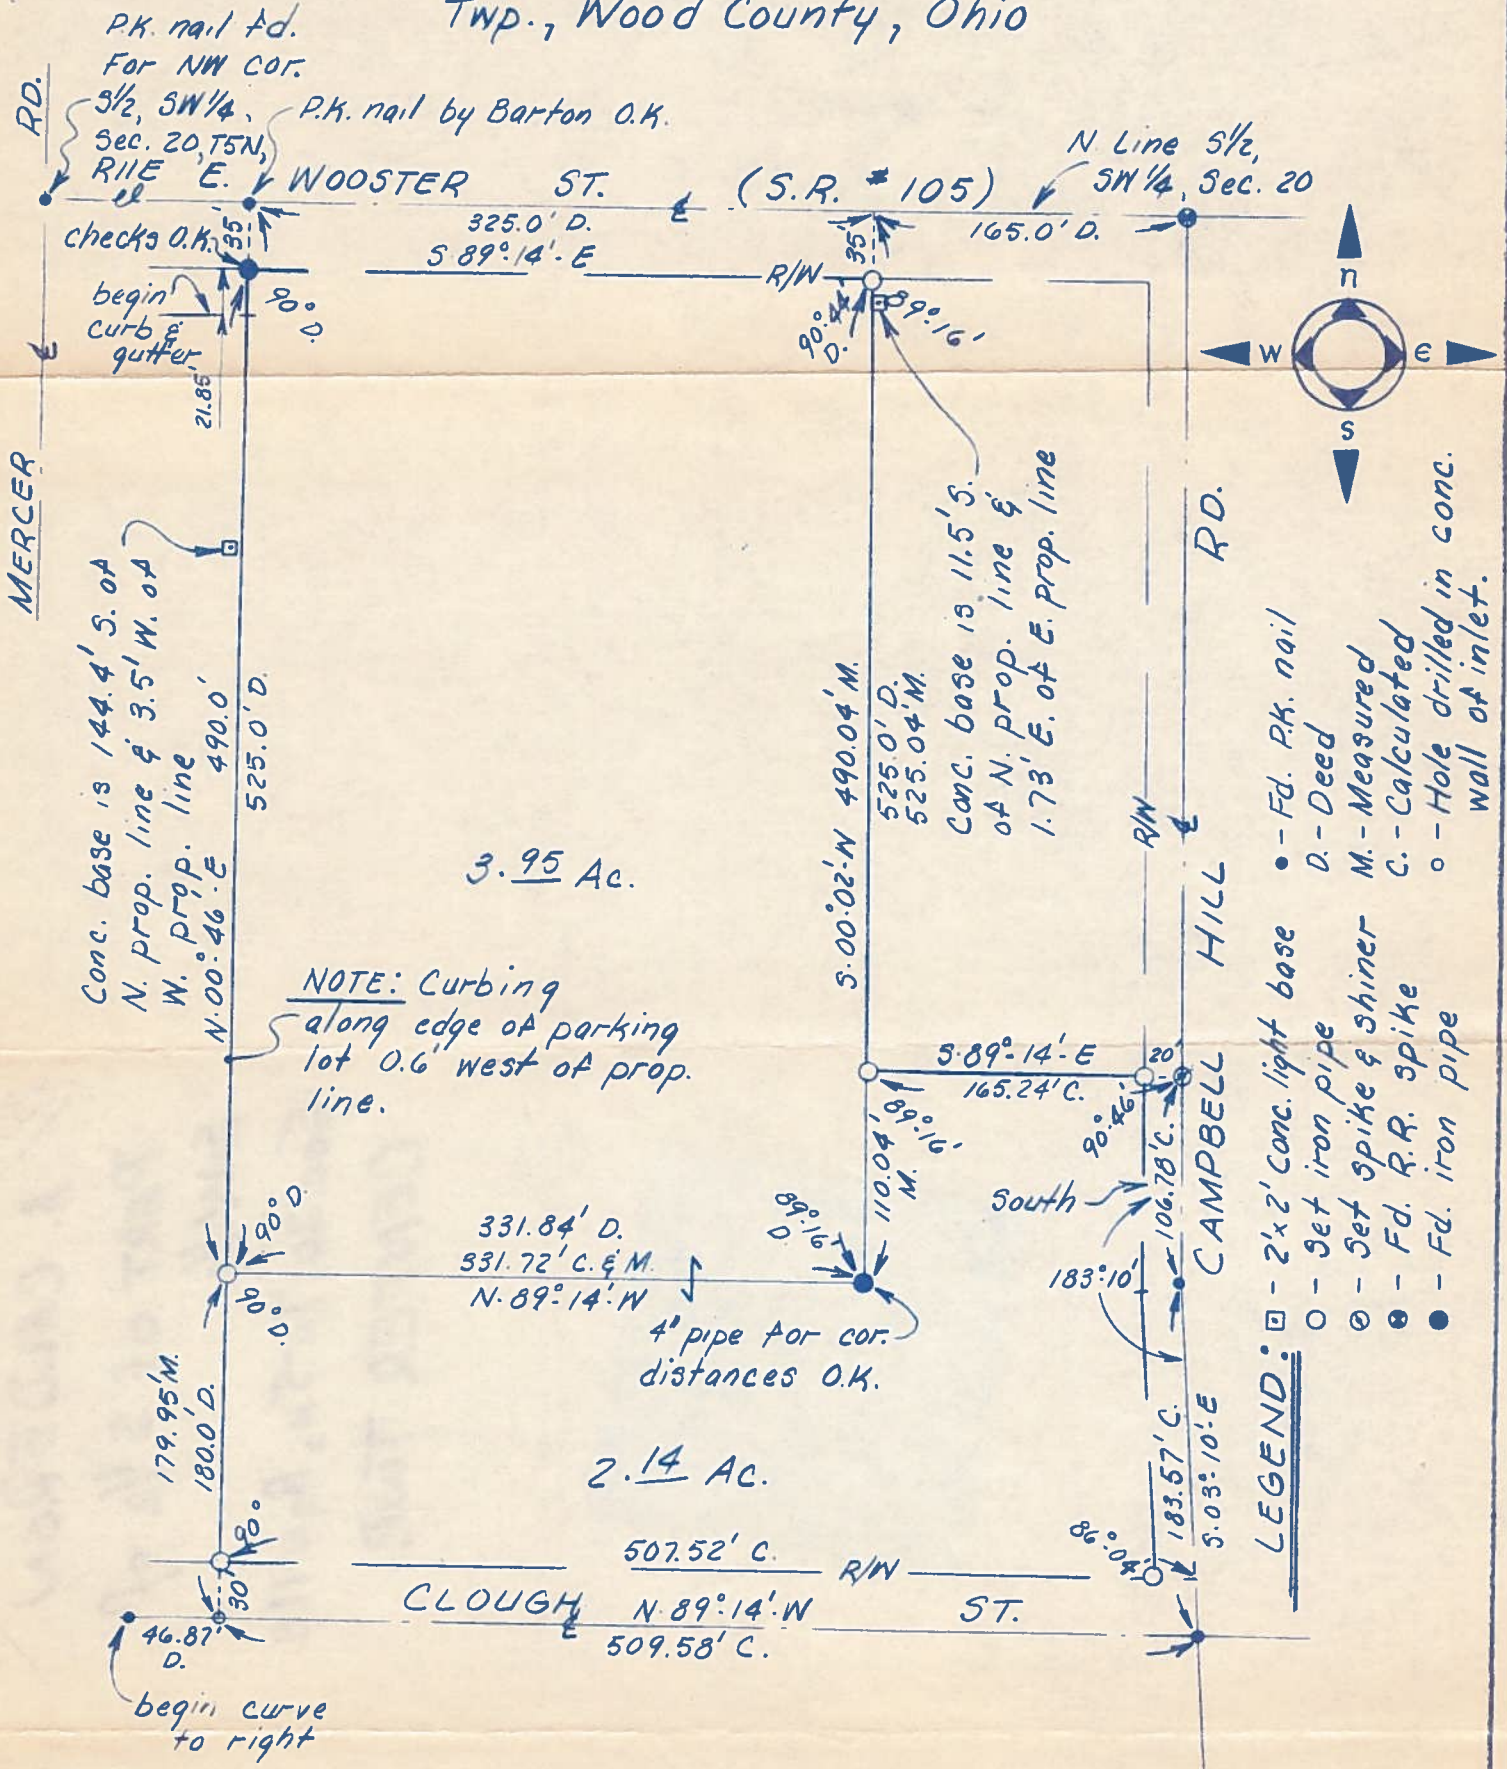 Twp., Wood County, Ohio
P.K. nail fd.
For NW cor.
S1/2, SW 1/4,
Sec. 20, T5N,
R11E
P.K. nail by Barton O.K.
N. Line S1/2,
SW 1/4, Sec. 20
MERCER RD.
E. WOOSTER ST. (S.R. #105)
325.0' D.
S·89°·14'·E
165.0' D.
35'
35'
checks O.K.
R/W
begin
curb &
gutter
21.85'
90°
D.
90°·44'
D.
89°·16'
n
W
E
S
Conc. base is 144.4' S. of
N. prop. line & 3.5' W. of
W. prop. line
N·00°·46'·E 490.0'
525.0' D.
S·00°·02'·W 490.04' M.
525.0' D.
525.04' M.
Conc. base is 11.5' S.
of N. prop. line &
1.73' E. of E. prop. line
R/W
CAMPBELL HILL RD.
3.95 Ac.
NOTE: Curbing
along edge of parking
lot 0.6' west of prop.
line.
S·89°·14'·E
165.24' C.
20'
89°·16'
90°·46'
110.04'
M.
South
106.78' C.
183°·10'
90° D.
90°
D.
331.84' D.
331.72' C. & M.
N·89°·14'·W
89°·16'
D.
4" pipe for cor.
distances O.K.
179.95' M.
180.0' D.
2.14 Ac.
183.57' C.
S·03°·10'·E
90°
86°·04'
507.52' C.
R/W
30'
CLOUGH ST.
N·89°·14'·W
509.58' C.
46.87'
D.
begin curve
to right
LEGEND:
- 2'x2' conc. light base
- Set iron pipe
- Set spike & shiner
- Fd. R.R. spike
- Fd. iron pipe
- Fd. P.K. nail
D. - Deed
M. - Measured
C. - Calculated
- Hole drilled in conc.
wall of inlet.